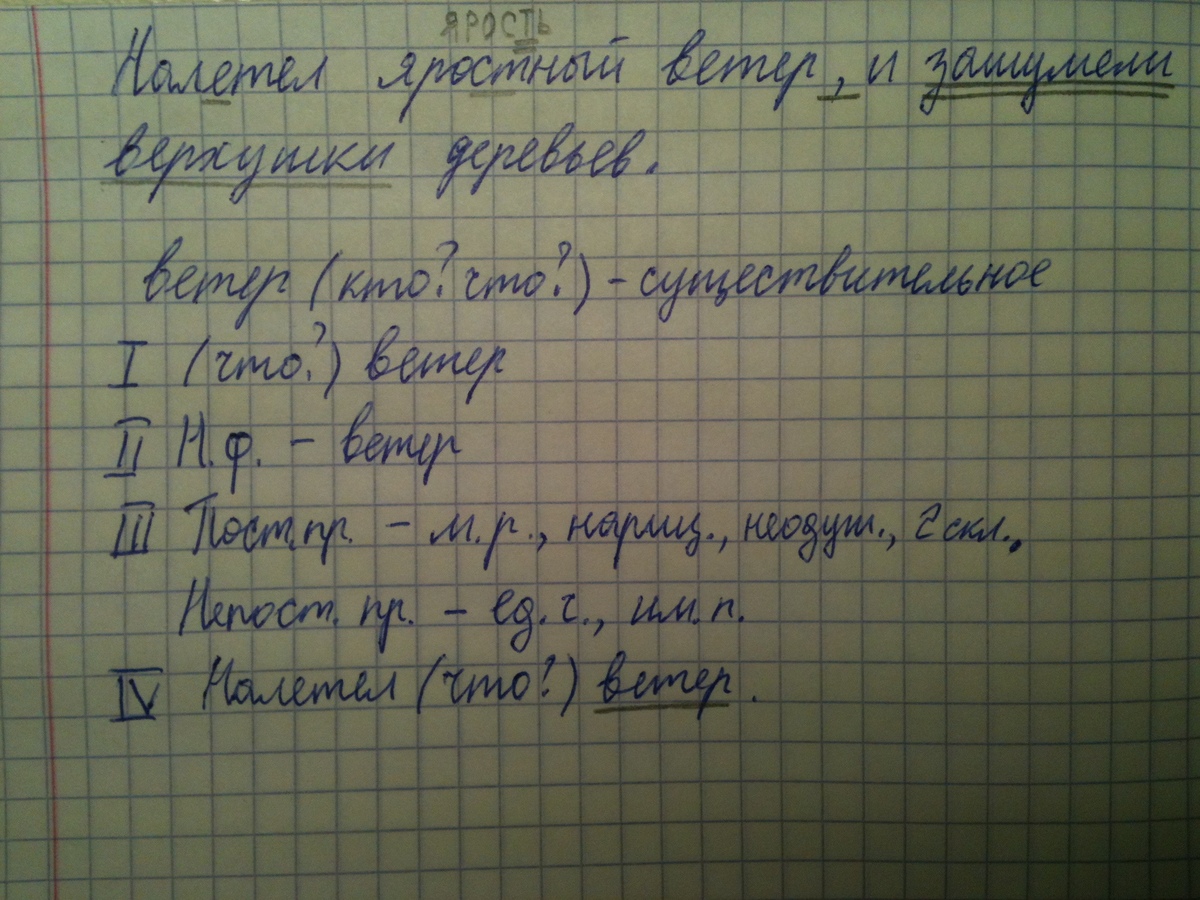 ЯРОСТЬ
Налетел яростный ветер, и зашумели
верхушки деревьев.
ветер (кто? что?) - существительное
I (что?) ветер
II Н.ф. - ветер
III Пост.пр. - м.р., нариц., неодуш., 2 скл.,
Непост. пр. - ед.ч., им.п.
IV Налетел (что?) ветер.